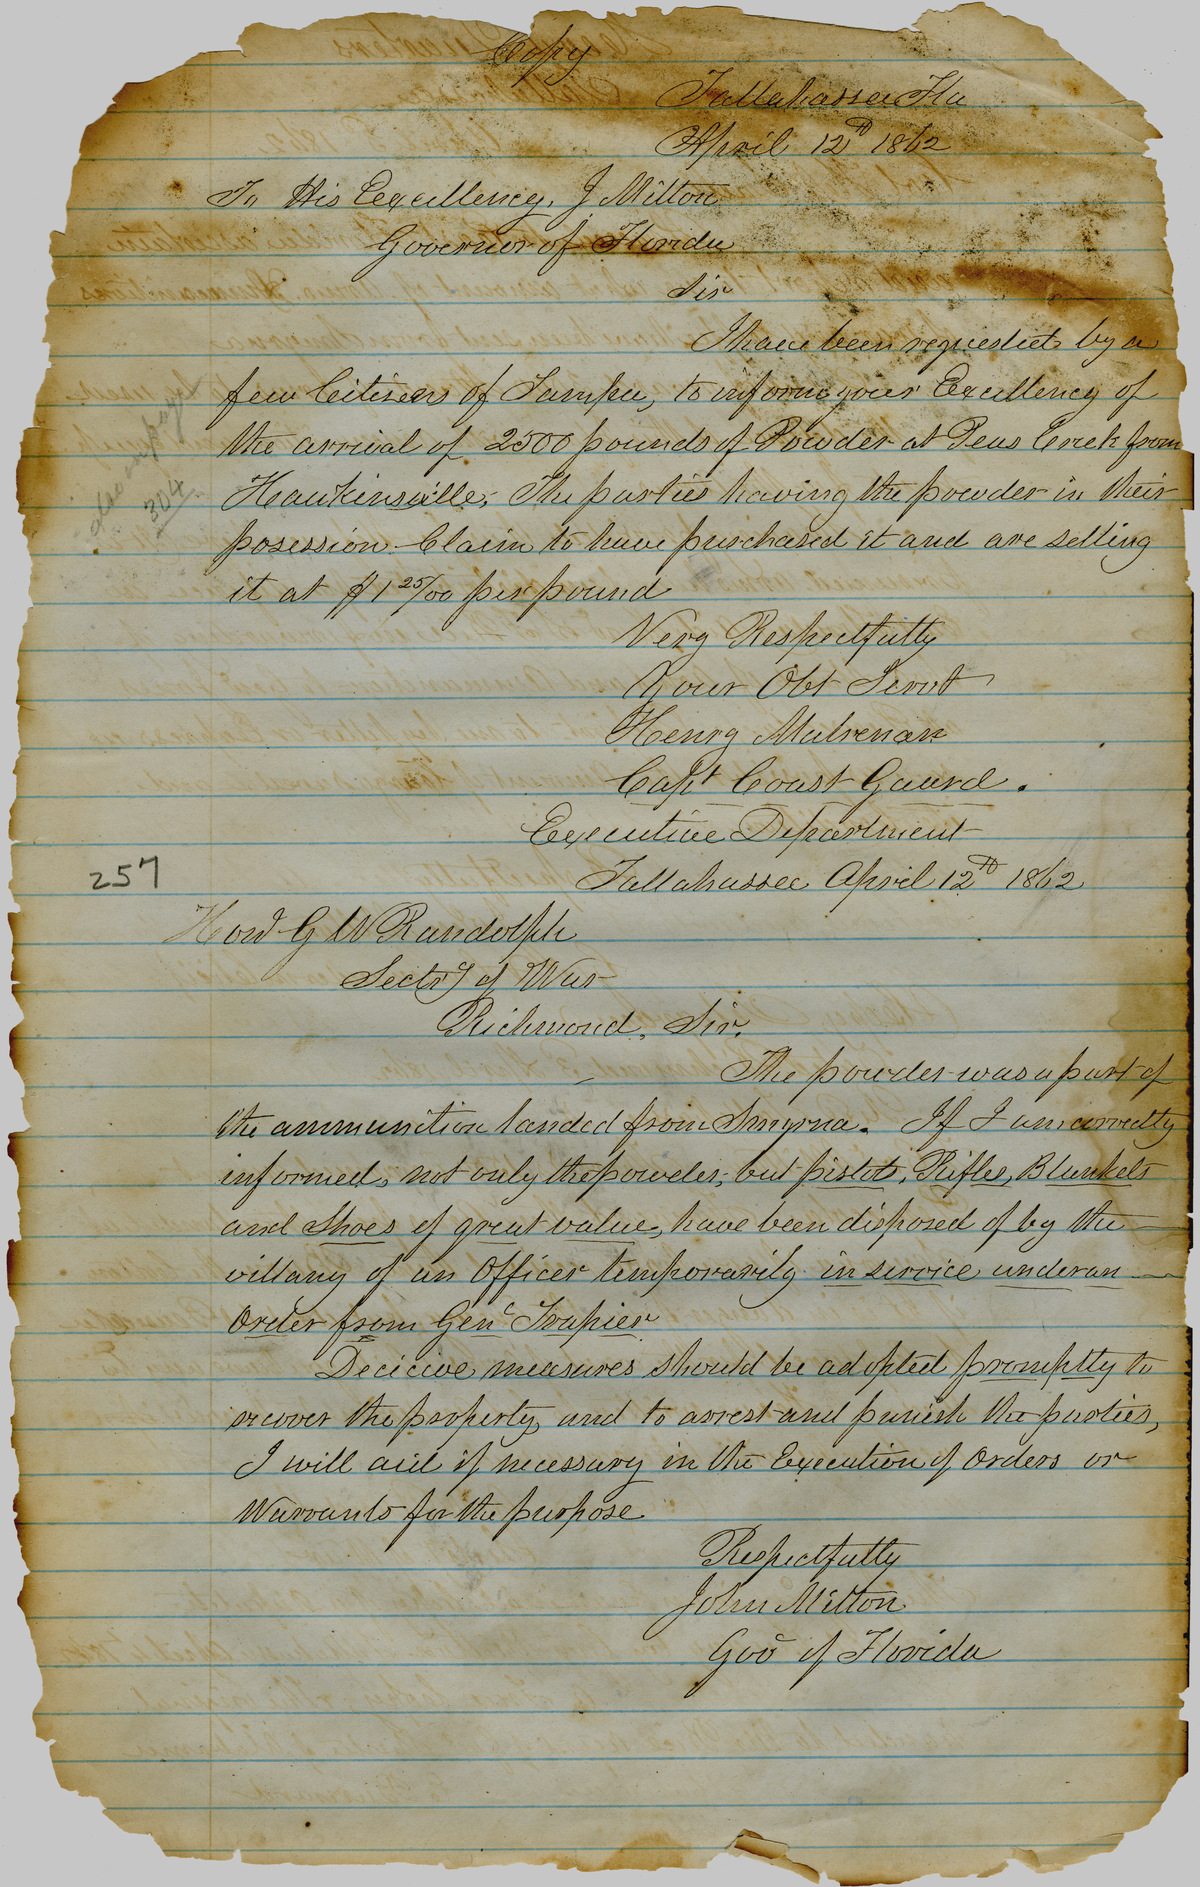 Copy
Tallahassee Fla
April 12th 1862
To His Excellency, J Milton
Governor of Florida
Sir
I have been requested by a
few Citizens of Tampa, to inform your Excellency of
the arrival of 2500 pounds of Powder at Peas Creek from
Hawkinsville, The parties having the powder in their
posession Claim to have purchased it and are selling
it at $1 25/00 per pound
Very Respectfully
Your Obt Servt
Henry Mulrenan
Capt Coast Gaurd.
Executive Department
Tallahassee April 12th 1862
257
Hond G W Randolph
Secty of War
Richmond, Sir,
The powder was a part of
the ammunition landed from Smyrna. If I am correctly
informed, not only the powder, but pistols, Rifles, Blankets
and Shoes of great value, have been disposed of by the
villany of an Officer temporarily in service under an
Order from Genl Trapier
Decicive measures should be adopted promptly to
recover the property, and to arrest and punish the parties,
I will aid if necessary in the Execution of Orders or
Warrants for the purpose
Respectfully
John Milton
Gov of Florida
also on page
304